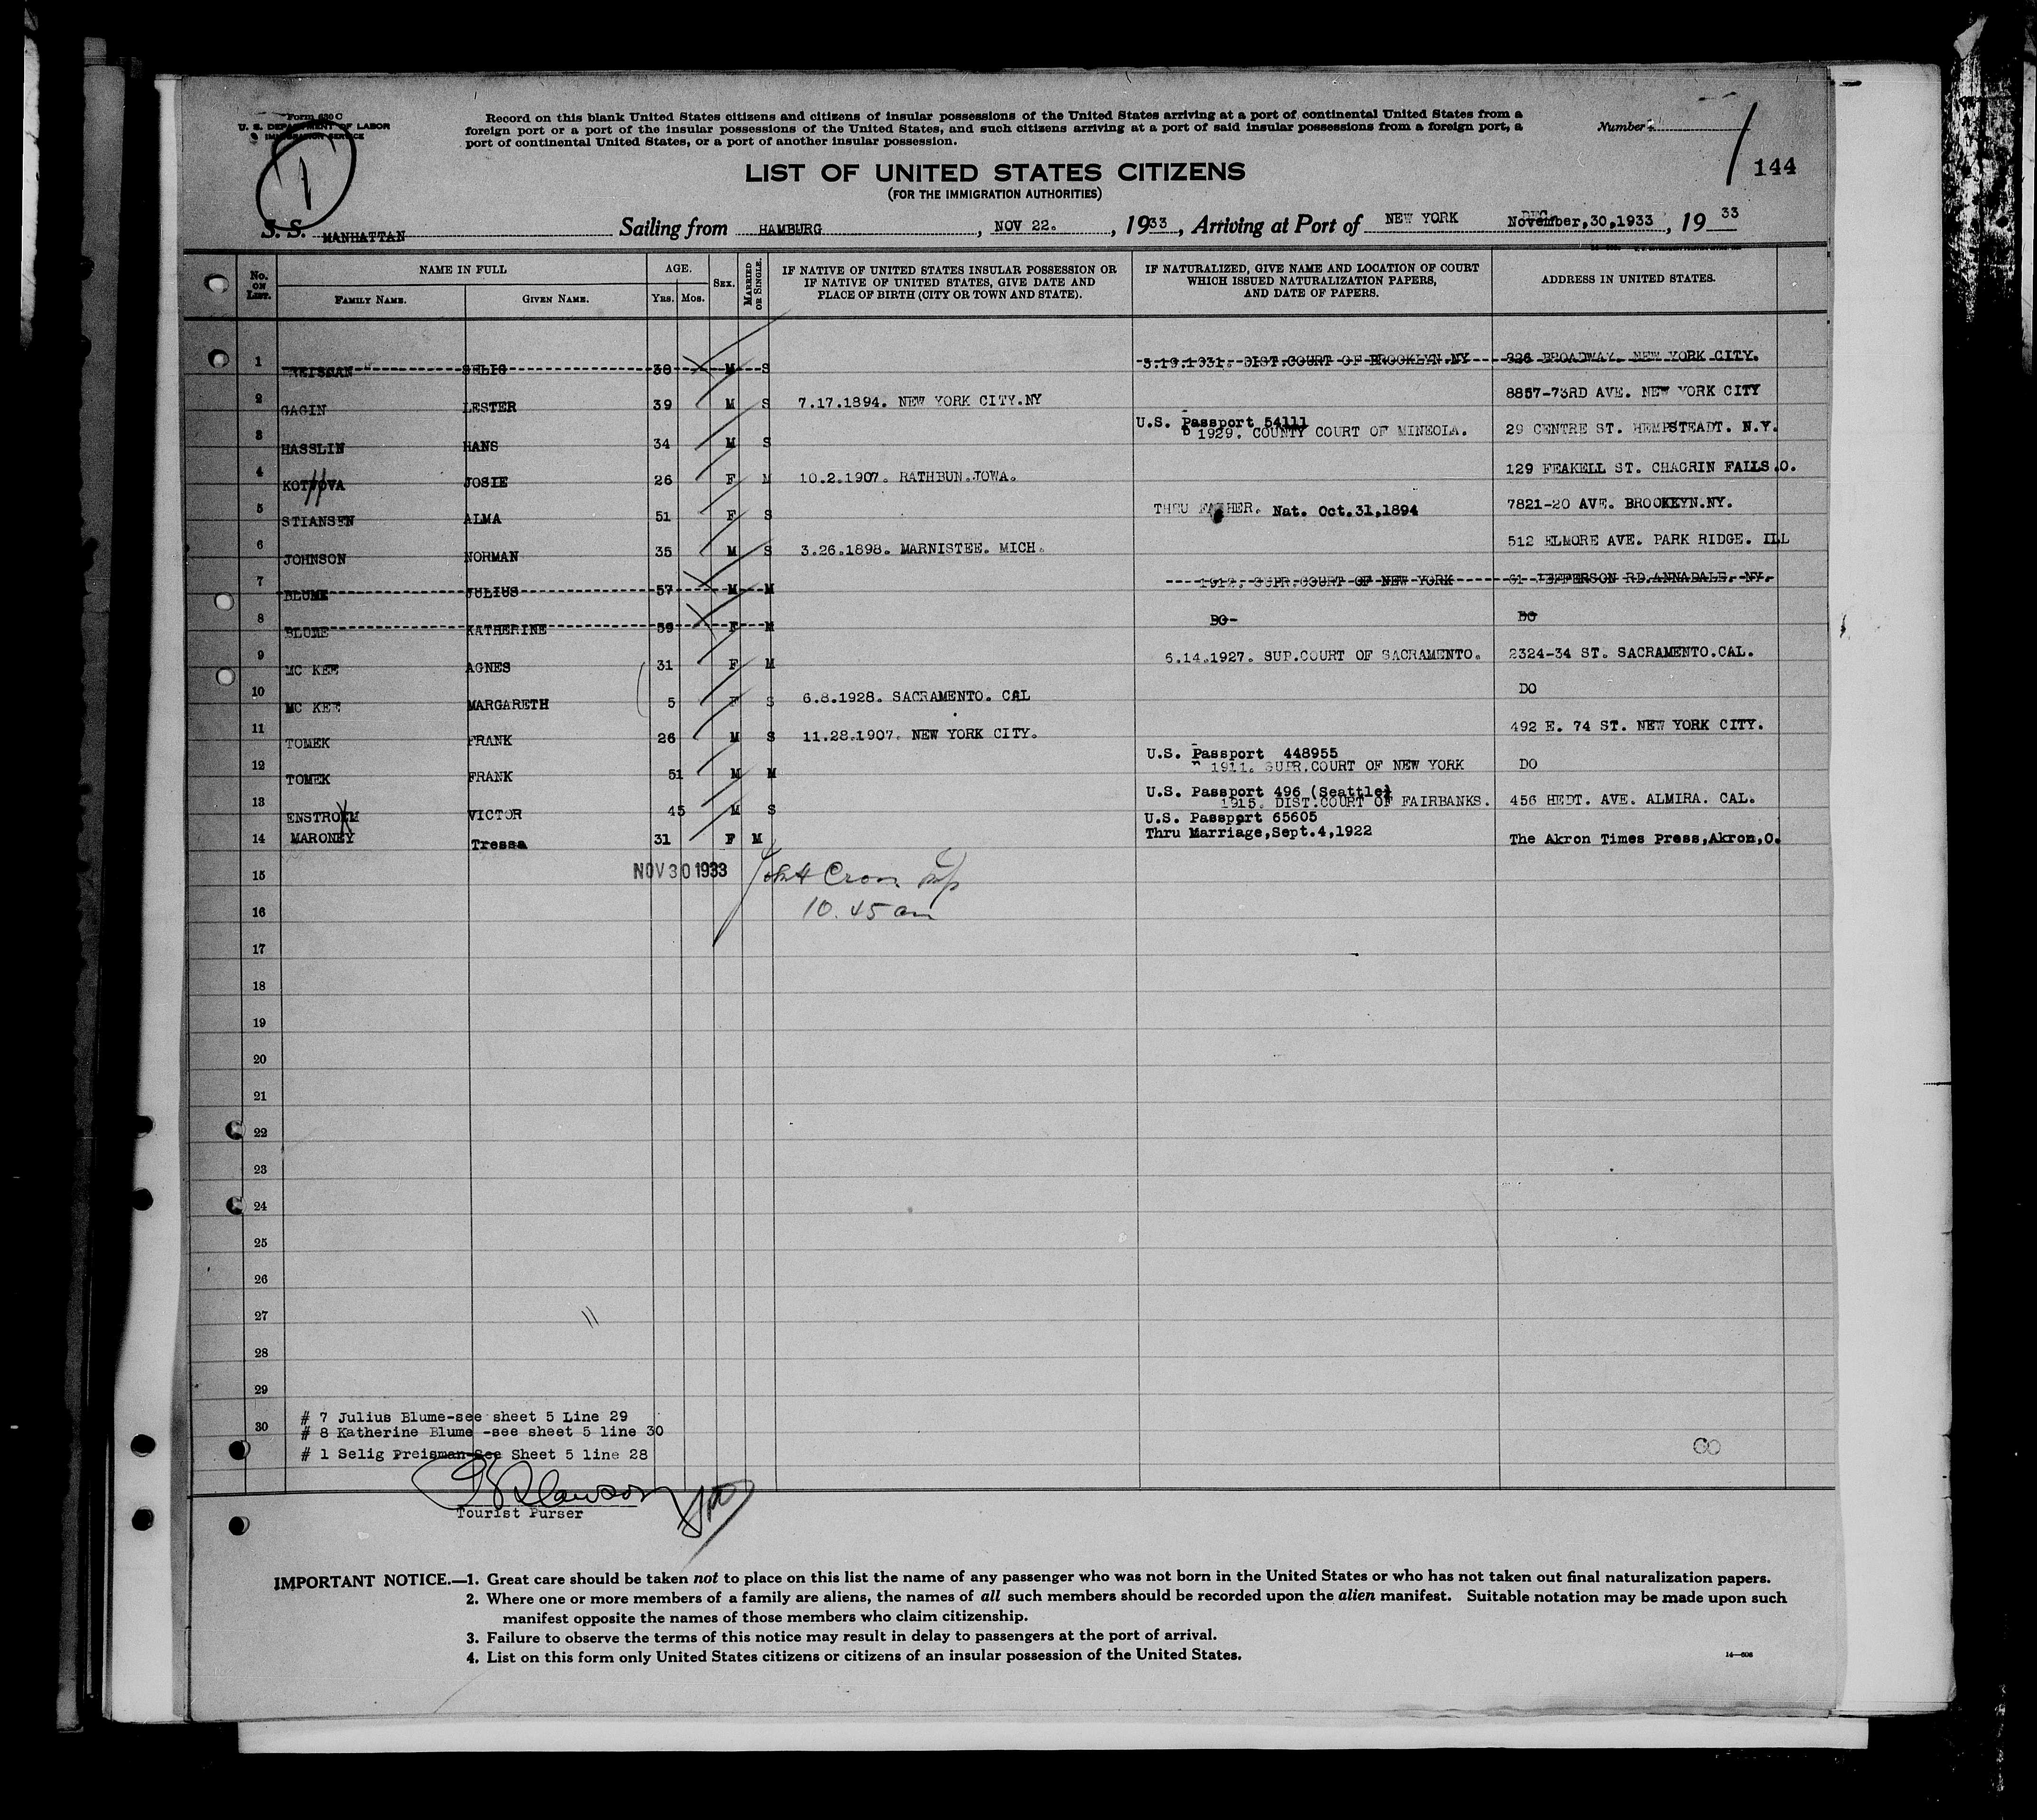 Form 630 C
U. S. DEPARTMENT OF LABOR
IMMIGRATION SERVICE
1
Record on this blank United States citizens and citizens of insular possessions of the United States arriving at a port of continental United States from a
foreign port or a port of the insular possessions of the United States, and such citizens arriving at a port of said insular possessions from a foreign port, a
port of continental United States, or a port of another insular possession.
Number
144
LIST OF UNITED STATES CITIZENS
(FOR THE IMMIGRATION AUTHORITIES)
S. S. MANHATTAN Sailing from HAMBURG, NOV 22., 1933, Arriving at Port of NEW YORK November,30,1933, 1933
No. ON LIST. NAME IN FULL FAMILY NAME. GIVEN NAME. AGE. YRS. MOS. SEX. MARRIED OR SINGLE. IF NATIVE OF UNITED STATES INSULAR POSSESSION OR IF NATIVE OF UNITED STATES, GIVE DATE AND PLACE OF BIRTH (CITY OR TOWN AND STATE). IF NATURALIZED, GIVE NAME AND LOCATION OF COURT WHICH ISSUED NATURALIZATION PAPERS, AND DATE OF PAPERS. ADDRESS IN UNITED STATES.
1 PREISMAN SELIG 38 M S 5.19.1931. DIST.COURT OF BROOKLYN.NY 926 BROADWAY. NEW YORK CITY.
2 GAGIN LESTER 39 M S 7.17.1894. NEW YORK CITY.NY 8857-73RD AVE. NEW YORK CITY
U.S. Passport 54111
3 HASSLIN HANS 34 M S 1929. COUNTY COURT OF MINEOLA. 29 CENTRE ST. HEMPSTEADT. N.Y.
4 KOTVOVA JOSIE 26 F M 10.2.1907. RATHBUN.JOWA. 129 FEAKELL ST. CHAGRIN FALLS.O.
5 STIANSEN ALMA 51 F S THRU FATHER. Nat. Oct.31,1894 7821-20 AVE. BROOKLYN.NY.
6 JOHNSON NORMAN 35 M S 3.26.1898. MARNISTEE. MICH. 512 ELMORE AVE. PARK RIDGE. ILL
7 BLUME JULIUS 57 M M 1912. SUPR.COURT OF NEW YORK 61 JEFFERSON RD.ANNADALE. NY.
8 BLUME KATHERINE 59 F M DO- DO
9 MC KEE AGNES 31 F M 6.14.1927. SUP.COURT OF SACRAMENTO. 2324-34 ST. SACRAMENTO.CAL.
10 MC KEE MARGARETH 5 F S 6.8.1928. SACRAMENTO. CAL DO
11 TOMEK FRANK 26 M S 11.28.1907. NEW YORK CITY. 492 E. 74 ST. NEW YORK CITY.
U.S. Passport 448955
12 TOMEK FRANK 51 M M 1911. SUPR.COURT OF NEW YORK DO
U.S. Passport 496 (Seattle)
13 ENSTROEM VICTOR 45 M S 1915. DIST.COURT OF FAIRBANKS. 456 HEDT. AVE. ALMIRA. CAL.
U.S. Passport 65605
14 MARONEY Tressa 31 F M Thru Marriage,Sept.4,1922 The Akron Times Press,Akron,O.
15 NOV 30 1933
16 10.45 am
17
18
19
20
21
22
23
24
25
26
27
28
29
# 7 Julius Blume-see sheet 5 Line 29
30 # 8 Katherine Blume -see sheet 5 line 30
# 1 Selig Preisman-See Sheet 5 line 28
Tourist Purser
IMPORTANT NOTICE.—1. Great care should be taken not to place on this list the name of any passenger who was not born in the United States or who has not taken out final naturalization papers.
2. Where one or more members of a family are aliens, the names of all such members should be recorded upon the alien manifest. Suitable notation may be made upon such
manifest opposite the names of those members who claim citizenship.
3. Failure to observe the terms of this notice may result in delay to passengers at the port of arrival.
4. List on this form only United States citizens or citizens of an insular possession of the United States.
14—608